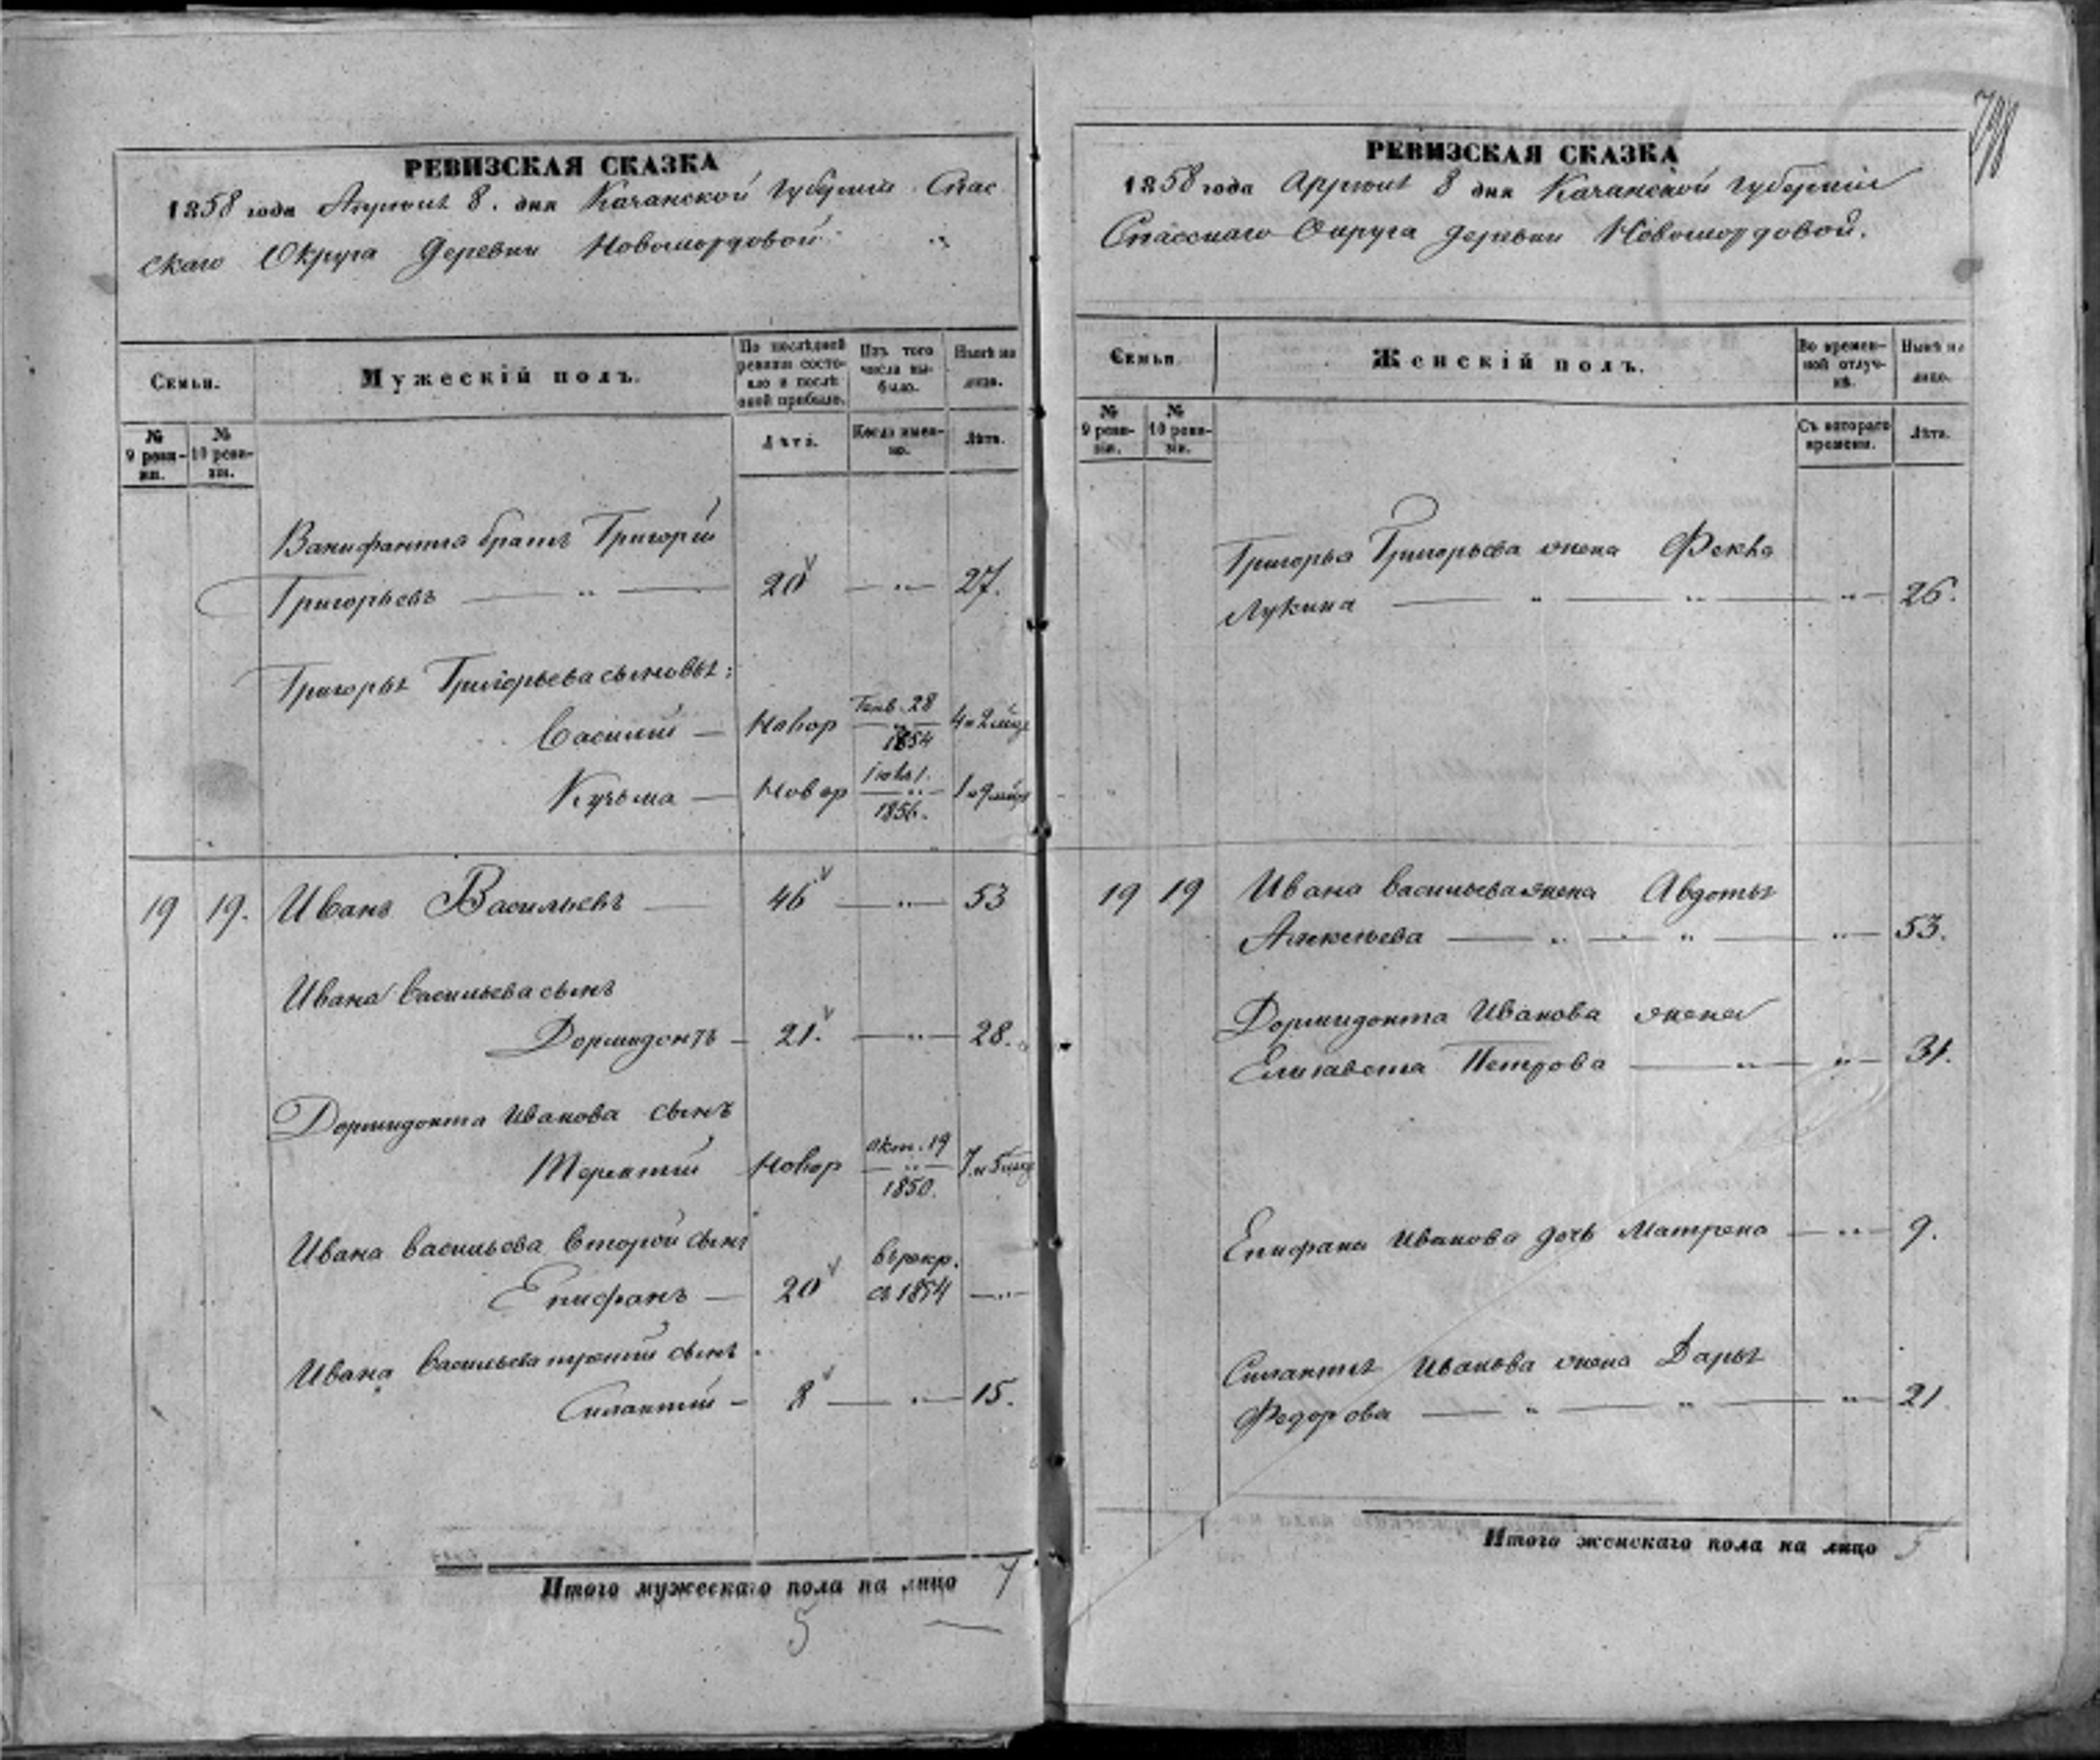 РЕВИЗСКАЯ СКАЗКА
1858 года Апреля 8. дня Казанской Губернии Спас
скаго Округа Деревни Новомордовой
Семьи.
Мужескій полъ.
По послѣдней ревизіи состояло и послѣ оной прибыло.
Изъ того числа выбыло.
Нынѣ на лицо.
№ 9 ревизіи.
№ 10 ревизіи.
Лѣта.
Когда именно.
Лѣта.
Ванифантія братъ Григорій
Григорьевъ — " — 20 — " — 27.
Григорья Григорьева сыновья:
Василий — Новор Генв. 28 1854 4 и 2 мѣс
Кузьма — Новор Іюля 1. 1856. 1 и 9 мѣс
19 19. Иванъ Васильевъ — 46 — " — 53
Ивана Васильева сынъ
Дормидонтъ — 21. — " — 28.
Дормидонта Иванова сынъ
Терентій Новор Окт. 19 1850. 7 и 5 мѣс
Ивана Васильева второй сынъ
Епифанъ — 20 въ рекр. съ 1854 — " —
Ивана Васильева третій сынъ
Силантій — 8 — " — 15.
Итого мужескаго пола на лицо 7
5
РЕВИЗСКАЯ СКАЗКА
1858 года Апреля 8 дня Казанской Губерніи
Спасскаго Округа деревни Новомордовой.
Семьи.
Женскій полъ.
Во временной отлучкѣ.
Нынѣ на лицо.
№ 9 ревизіи.
№ 10 ревизіи.
Съ котораго времени.
Лѣта.
Григорья Григорьева жена Фекла
Лукина — " — " — " — 26.
19 19 Ивана Васильева жена Авдотья
Алексеева — " — " — " — 53.
Дормидонта Иванова жена
Елизавета Петрова — " — " — 31.
Епифана Иванова дочь Матрена — " — 9.
Силантья Иванова жена Дарья
Федорова — " — " — " — 21
Итого женскаго пола на лицо 5